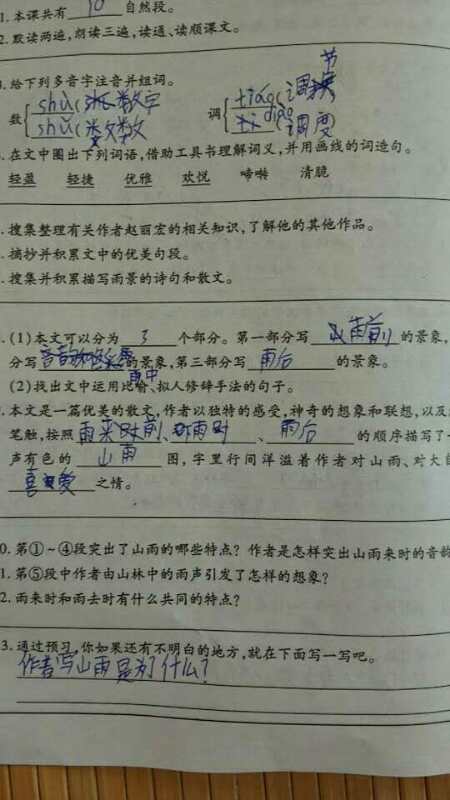 1.本课共有 10 自然段。
2.默读两遍,朗读三遍,读通、读顺课文。
.给下列多音字注音并组词。
数 shù( 数字 调 tiáo( 调节
shǔ( 数数 diào( 调度)
.在文中圈出下列词语,借助工具书理解词义,并用画线的词造句。
轻盈 轻捷 优雅 欢悦 啼啭 清脆
.搜集整理有关作者赵丽宏的相关知识,了解他的其他作品。
.摘抄并积累文中的优美句段。
.搜集并积累描写雨景的诗句和散文。
.(1)本文可以分为 3 个部分。第一部分写 雨前 的景象,
分写 音韵和色彩 雨中 的景象,第三部分写 雨后 的景象。
(2)找出文中运用比喻、拟人修辞手法的句子。
.本文是一篇优美的散文,作者以独特的感受,神奇的想象和联想,以及
笔触,按照 雨来时前 、 雨时 、 雨后 的顺序描写了一
声有色的 山雨 图,字里行间洋溢着作者对山雨、对大
喜爱 之情。
0.第①~④段突出了山雨的哪些特点?作者是怎样突出山雨来时的音韵
1.第⑤段中作者由山林中的雨声引发了怎样的想象?
2.雨来时和雨去时有什么共同的特点?
3.通过预习,你如果还有不明白的地方,就在下面写一写吧。
作者写山雨是为了什么?